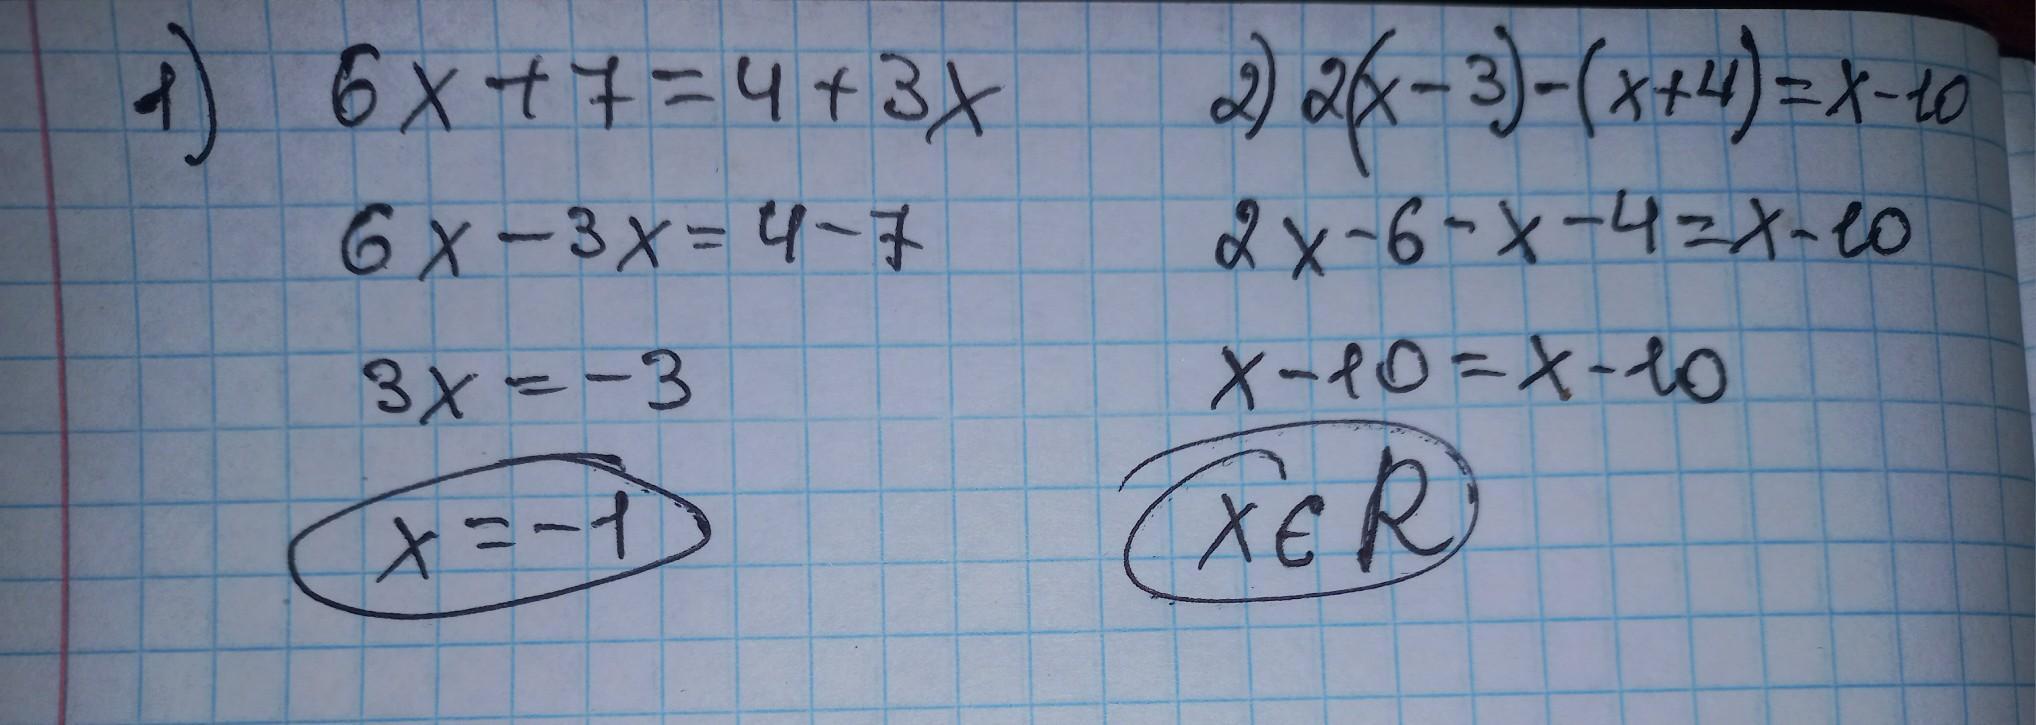 1) 6x+7=4+3x
6x-3x=4-7
3x=-3
x=-1
2) 2(x-3)-(x+4)=x-10
2x-6-x-4=x-10
x-10=x-10
x∈R